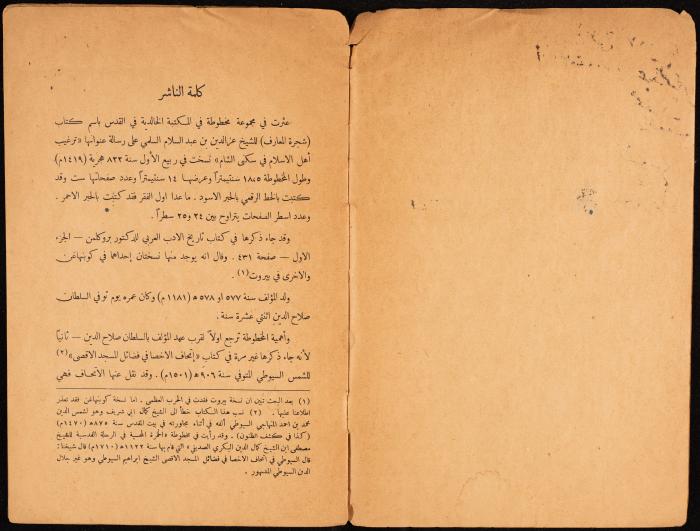 كلمة الناشر
عثرت في مجموعة مخطوطة في المكتبة الخالدية في القدس باسم كتاب
(شجرة المعارف) للشيخ عز الدين بن عبد السلام السلمي على رسالة عنوانها «ترغيب
أهل الاسلام في سكنى الشام» نسخت في ربيع الأول سنة ٨٢٢ هجرية (١٤١٩م)
وطول المخطوطة ١٨،٥ سنتيمتراً وعرضها ١٤ سنتيمتراً وعدد صفحاتها ست وقد
كتبت بالخط الرقعي بالحبر الاسود . ما عدا اول الفقر فقد كتبت بالحبر الاحمر .
وعدد اسطر الصفحات يتراوح بين ٢٤ و٢٥ سطراً .
وقد جاء ذكرها في كتاب تاريخ الادب العربي للدكتور بروكلمن — الجزء
الاول — صفحة ٤٣١ . وقال انه يوجد منها نسختان إحداهما في كوبنهاغن
والاخرى في بيروت (١) .
ولد المؤلف سنة ٥٧٧ او ٥٧٨ ه (١١٨١ م) وكان عمره يوم توفي السلطان
صلاح الدين اثنتي عشرة سنة .
وأهمية المخطوطة ترجع اولاً لقرب عهد المؤلف بالسلطان صلاح الدين — ثانياً
لأنه جاء ذكرها غير مرة في كتاب «إتحاف الاخصا في فضائل المسجد الاقصى» (٢)
للشمس السيوطي المتوفي سنة ٩٠٦ ه (١٥٠١م) . وقد نقل عنها الاتحاف فهي
(١) بعد البحث تبين ان نسخة بيروت فقدت في الحرب العظمى . اما نسخة كوبنهاغن فقد تعذر
اطلاعنا عليها . (٢) نسب هذا الكتاب خطأ الى الشيخ كمال ابي شريف وهو لشمس الدين
محمد بن احمد المنهاجي السيوطي ألفه في أثناء مجاورته في بيت المقدس سنة ٨٧٥ ه (١٤٧٠م)
(كما في كشف الظنون) . وقد رأيت في مخطوطة «الخمرة المحسية في الرحلة القدسية للشيخ
مصطفى ابن الشيخ كمال الدين البكري الصديقي» التي قام بها سنة ١١٢٢ ه (١٧١٠م) قال شيخنا :
قال السيوطي في اتحاف الاخصا في فضائل المسجد الاقصى الشيخ ابراهيم السيوطي وهو غير جلال
الدين السيوطي المشهور .